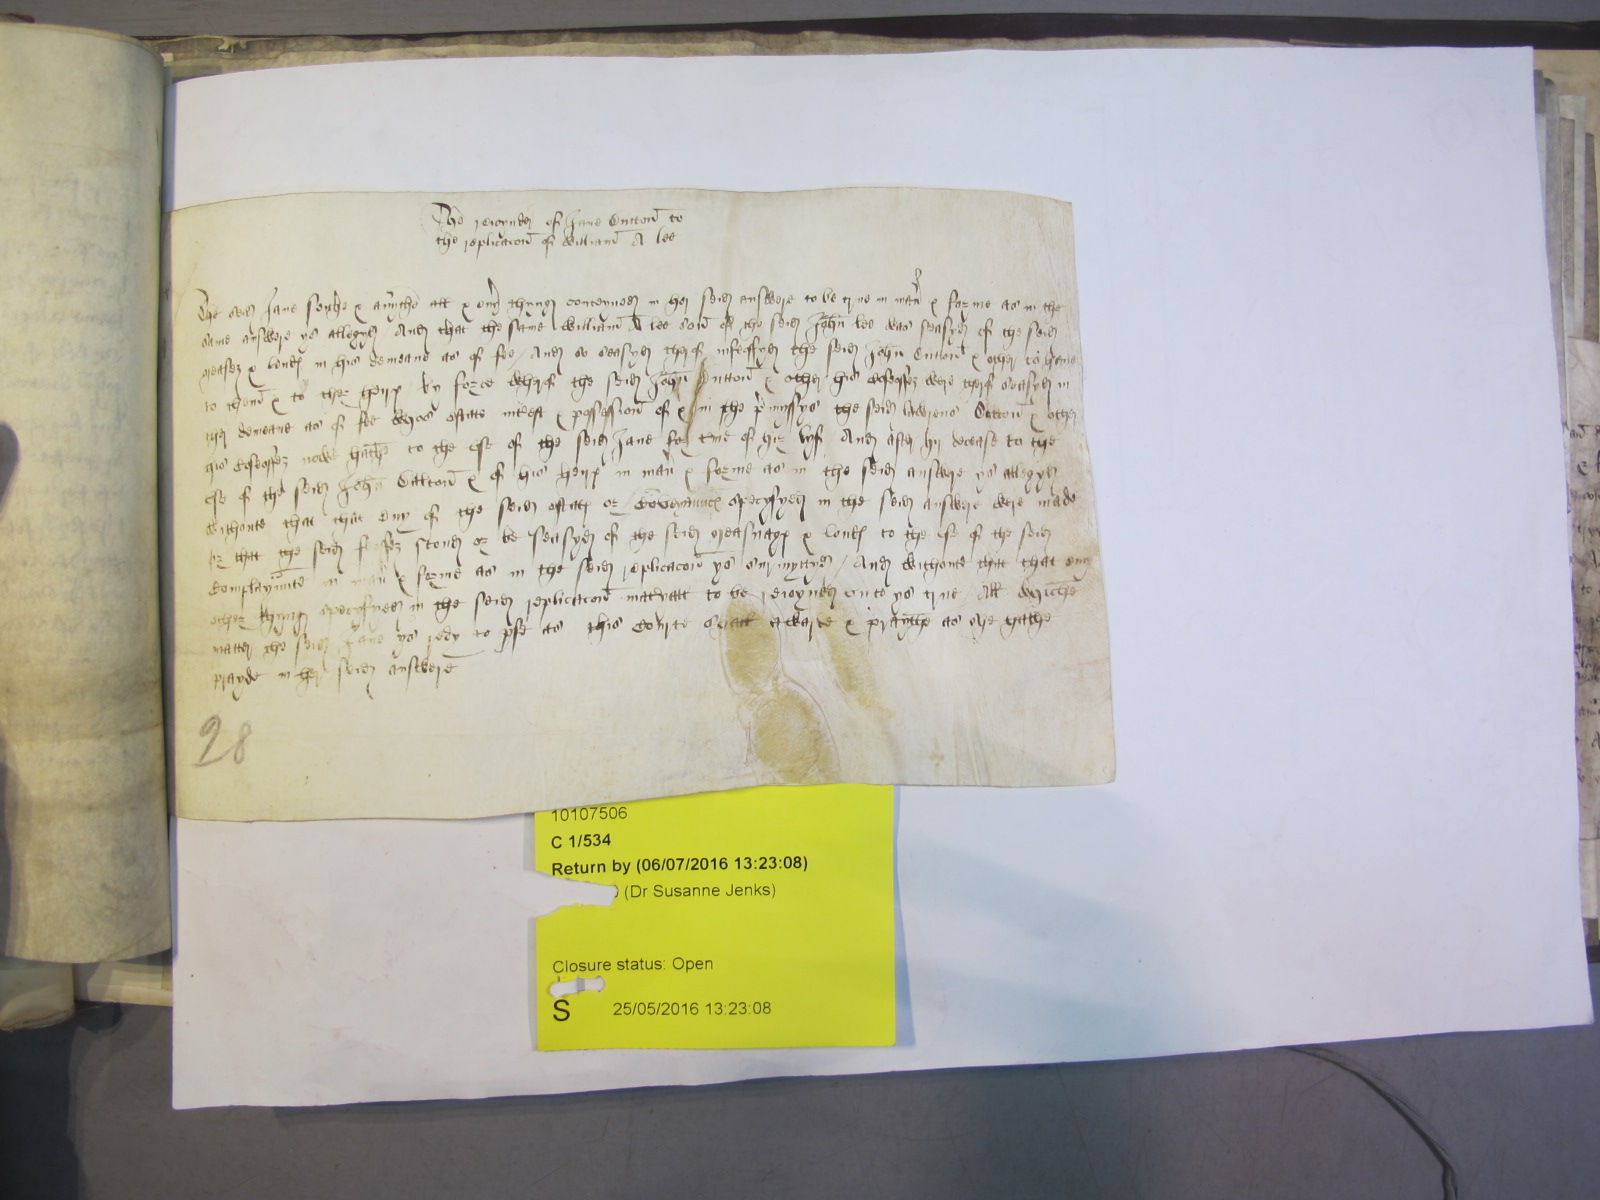 The reioynder of Jane Dutton to
the replicacion of William A lee
The seid Jane seythe & averrythe all & every thyng conteyned in her seid answere to be true in maner & forme as in the
same answere ys alleggyd And that the same William A lee son of the seid John lee was seasyd of the seid
measez & lond in his demeane as of fee And so seasyd therof infeoffyd the seid John Dutton & other to have
to them & to ther heirs by force wherof the seid John Dutton & other his cofeoffez were therof seasyd in
ther demeane as of fee whos estate interest & possession of & in the premyssys the seid lawrens Dutton & other
his cofeoffez nowe hathe to the use of the seid Jane for terme of hir lyf And after hir decease to the
use of the seid John Dutton & of his heirs in maner & forme as in the seid answere ys alleggyd
withoute that that eny of the seid estates or specyfyed in the seid answere were made
or that the seid feoffez stond or be seasyd of the seid measuages & lond to the use of the seid
complaynunte in maner & forme as in the seid replicacion ys surmyttyd And withoute that that eny
other thyng specyfyed in the seid replicacion materiall to be reioyned unto ys true All whiche
matters the seid Jane ys redy to prove as this courte shall awarde & praythe as she hathe
prayde in her seid answere
28
10107506
C 1/534
Return by (06/07/2016 13:23:08)
(Dr Susanne Jenks)
Closure status: Open
S 25/05/2016 13:23:08